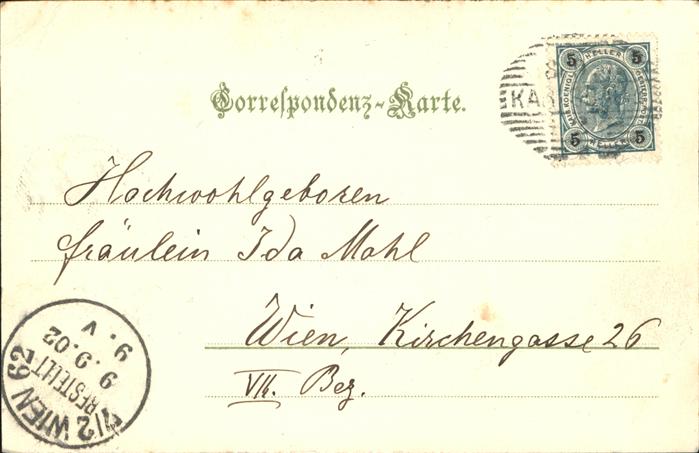 Correspondenz-Karte.
5 HELLER 5
5 HELLER 5
KA
Hochwohlgeboren
Fräulein Ida Mahl
Wien, Kirchengasse 26
VII. Bez.
7/2 WIEN 62
BESTELLT
9. 9. 02
9. V